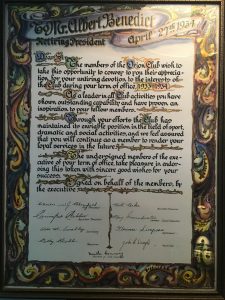 To Mr. Albert Benedict
Retiring President
April 27th 1954
Dear Sir:
The members of the Orion Club wish to
take this opportunity to convey to you their apprecia-
tion, for your untiring devotion to the interests of
Club during your term of office 1953-1954
As a leader in all Club activities you have
shown outstanding capability and have proven an
inspiration to your fellow members.
Through your efforts the Club has
maintained its enviable position in the field of sport,
dramatic and social activities, and we feel assured
that you will continue as a member to render your
loyal services in the future.
The undersigned members of the exe-
cutive of your term of office take pleasure in endor-
sing this token with sincere good wishes for your
success.
Signed on behalf of the members, by
the executive